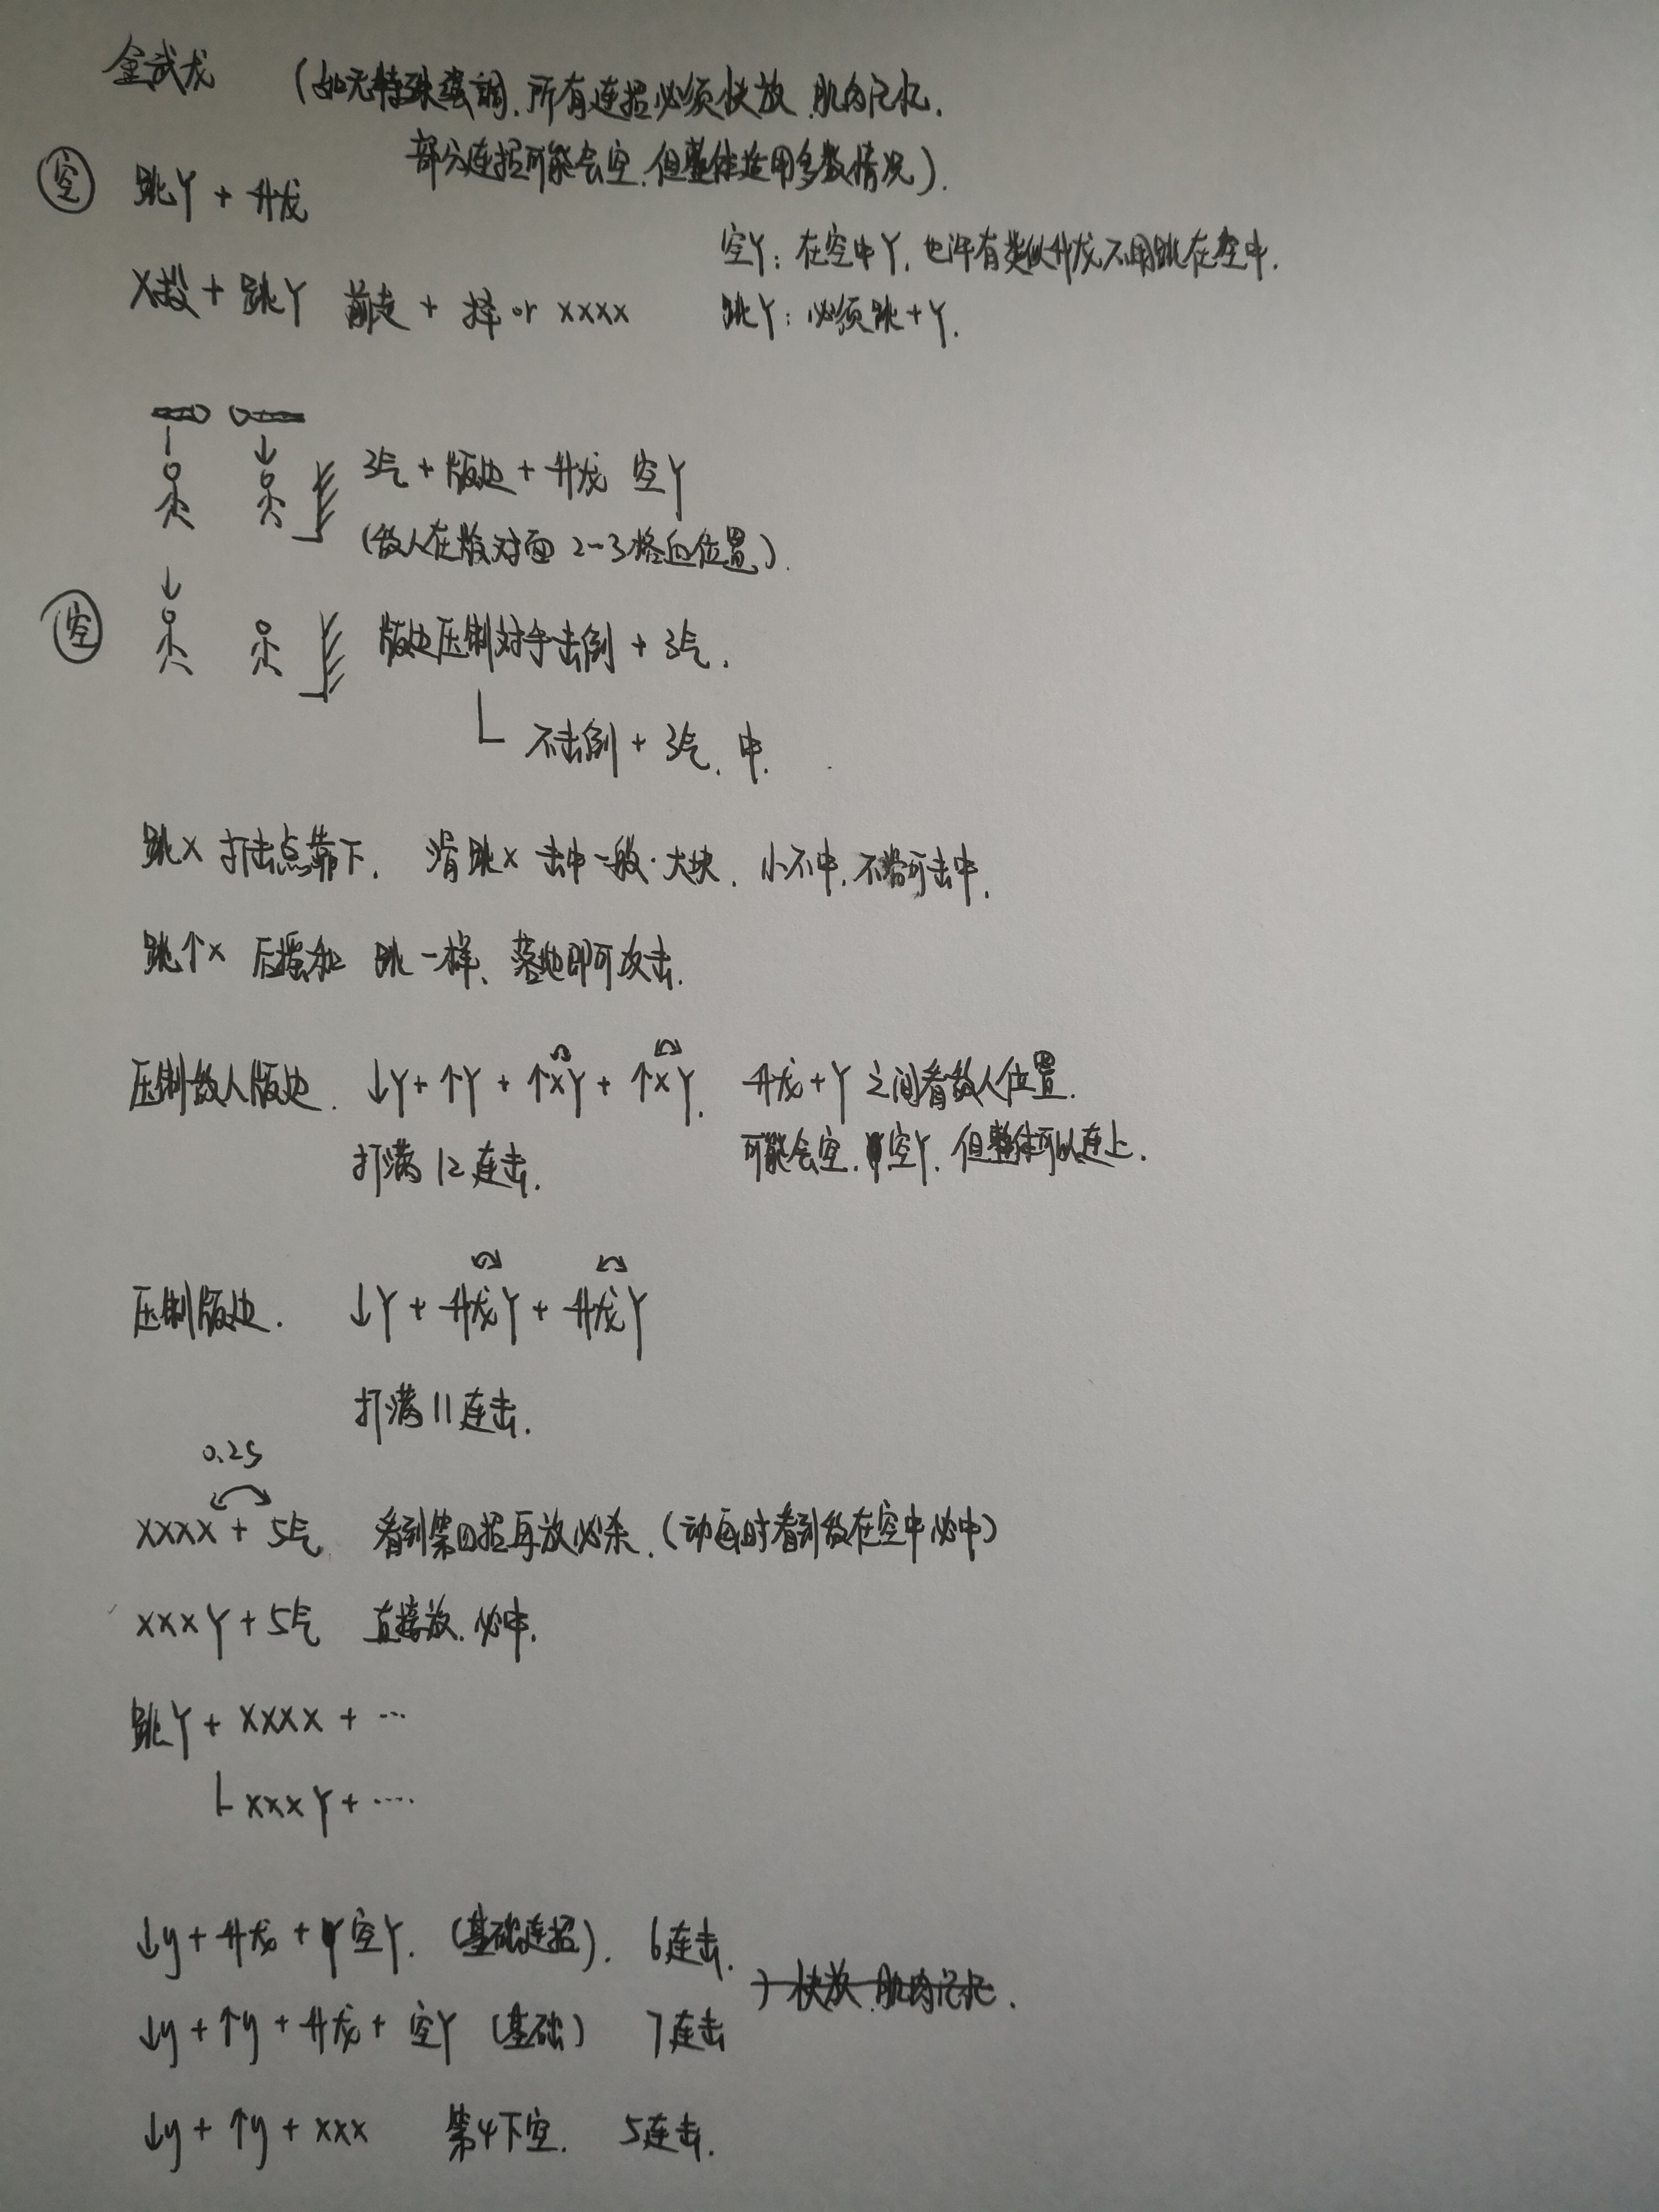 金武龙 (如无特殊强调.所有连招必须快放.肌肉记忆.
部分连招可能会空.但整体适用多数情况).
空 跳Y + 升龙
空Y: 在空中Y. 也许有类似升龙不用跳在空中.
X投 + 跳Y 前走 + 摔 or XXXX
跳Y: 必须跳+Y.
3气 + 版边 + 升龙 空Y
(敌人在版对面 2-3格血位置).
空 版边压制对手击倒 + 3气.
不击倒 + 3气. 中.
跳X 打击点靠下. 滑跳X 击中一般.大块. 小不中. 不滑可击中.
跳↑X 后摇和 跳一样. 落地即可攻击.
压制敌人版边. ↓Y + ↑Y + ↑XY + ↑XY. 升龙+Y 之间看敌人位置.
打满 12 连击. 可能会空. 空Y. 但整体可以连上.
压制版边. ↓Y + 升龙Y + 升龙Y
打满 11 连击.
0.2S
XXXX + 5气 看到第四招再放必杀. (动画时看到敌在空中必中)
XXXY + 5气 直接放. 必中.
跳Y + XXXX + ...
XXXY + ....
↓y + 升龙 + 空Y. (基础连招). 6连击.
快放.肌肉记忆.
↓y + ↑y + 升龙 + 空Y (基础) 7连击
↓y + ↑y + XXX 第4下空. 5连击.